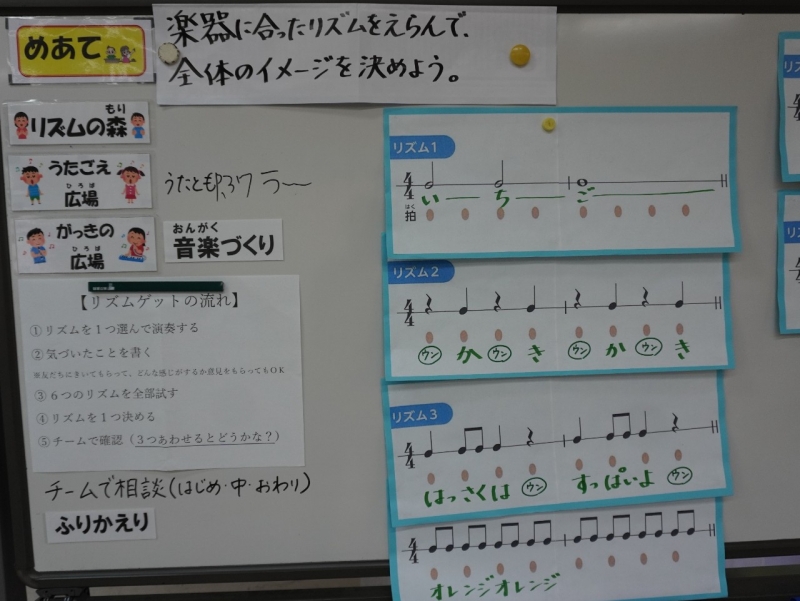 めあて
楽器に合ったリズムをえらんで、
全体のイメージを決めよう。
もり
リズムの森
うたごえ
ひろば
広場
がっきの
ひろば
広場
おんがく
音楽づくり
【リズムゲットの流れ】
①リズムを1つ選んで演奏する
②気づいたことを書く
※友だちにきいてもらって、どんな感じがするか意見をもらってもOK
③6つのリズムを全部試す
④リズムを1つ決める
⑤チームで確認(3つあわせるとどうかな?)
チームで相談(はじめ・中・おわり)
ふりかえり
リズム1
4/4
い ち ご
はく
拍
リズム2
4/4
ウン か ウン き ウン か ウン き
リズム3
4/4
はっさくは ウン すっぱいよ ウン
4/4
オレンジオレンジ